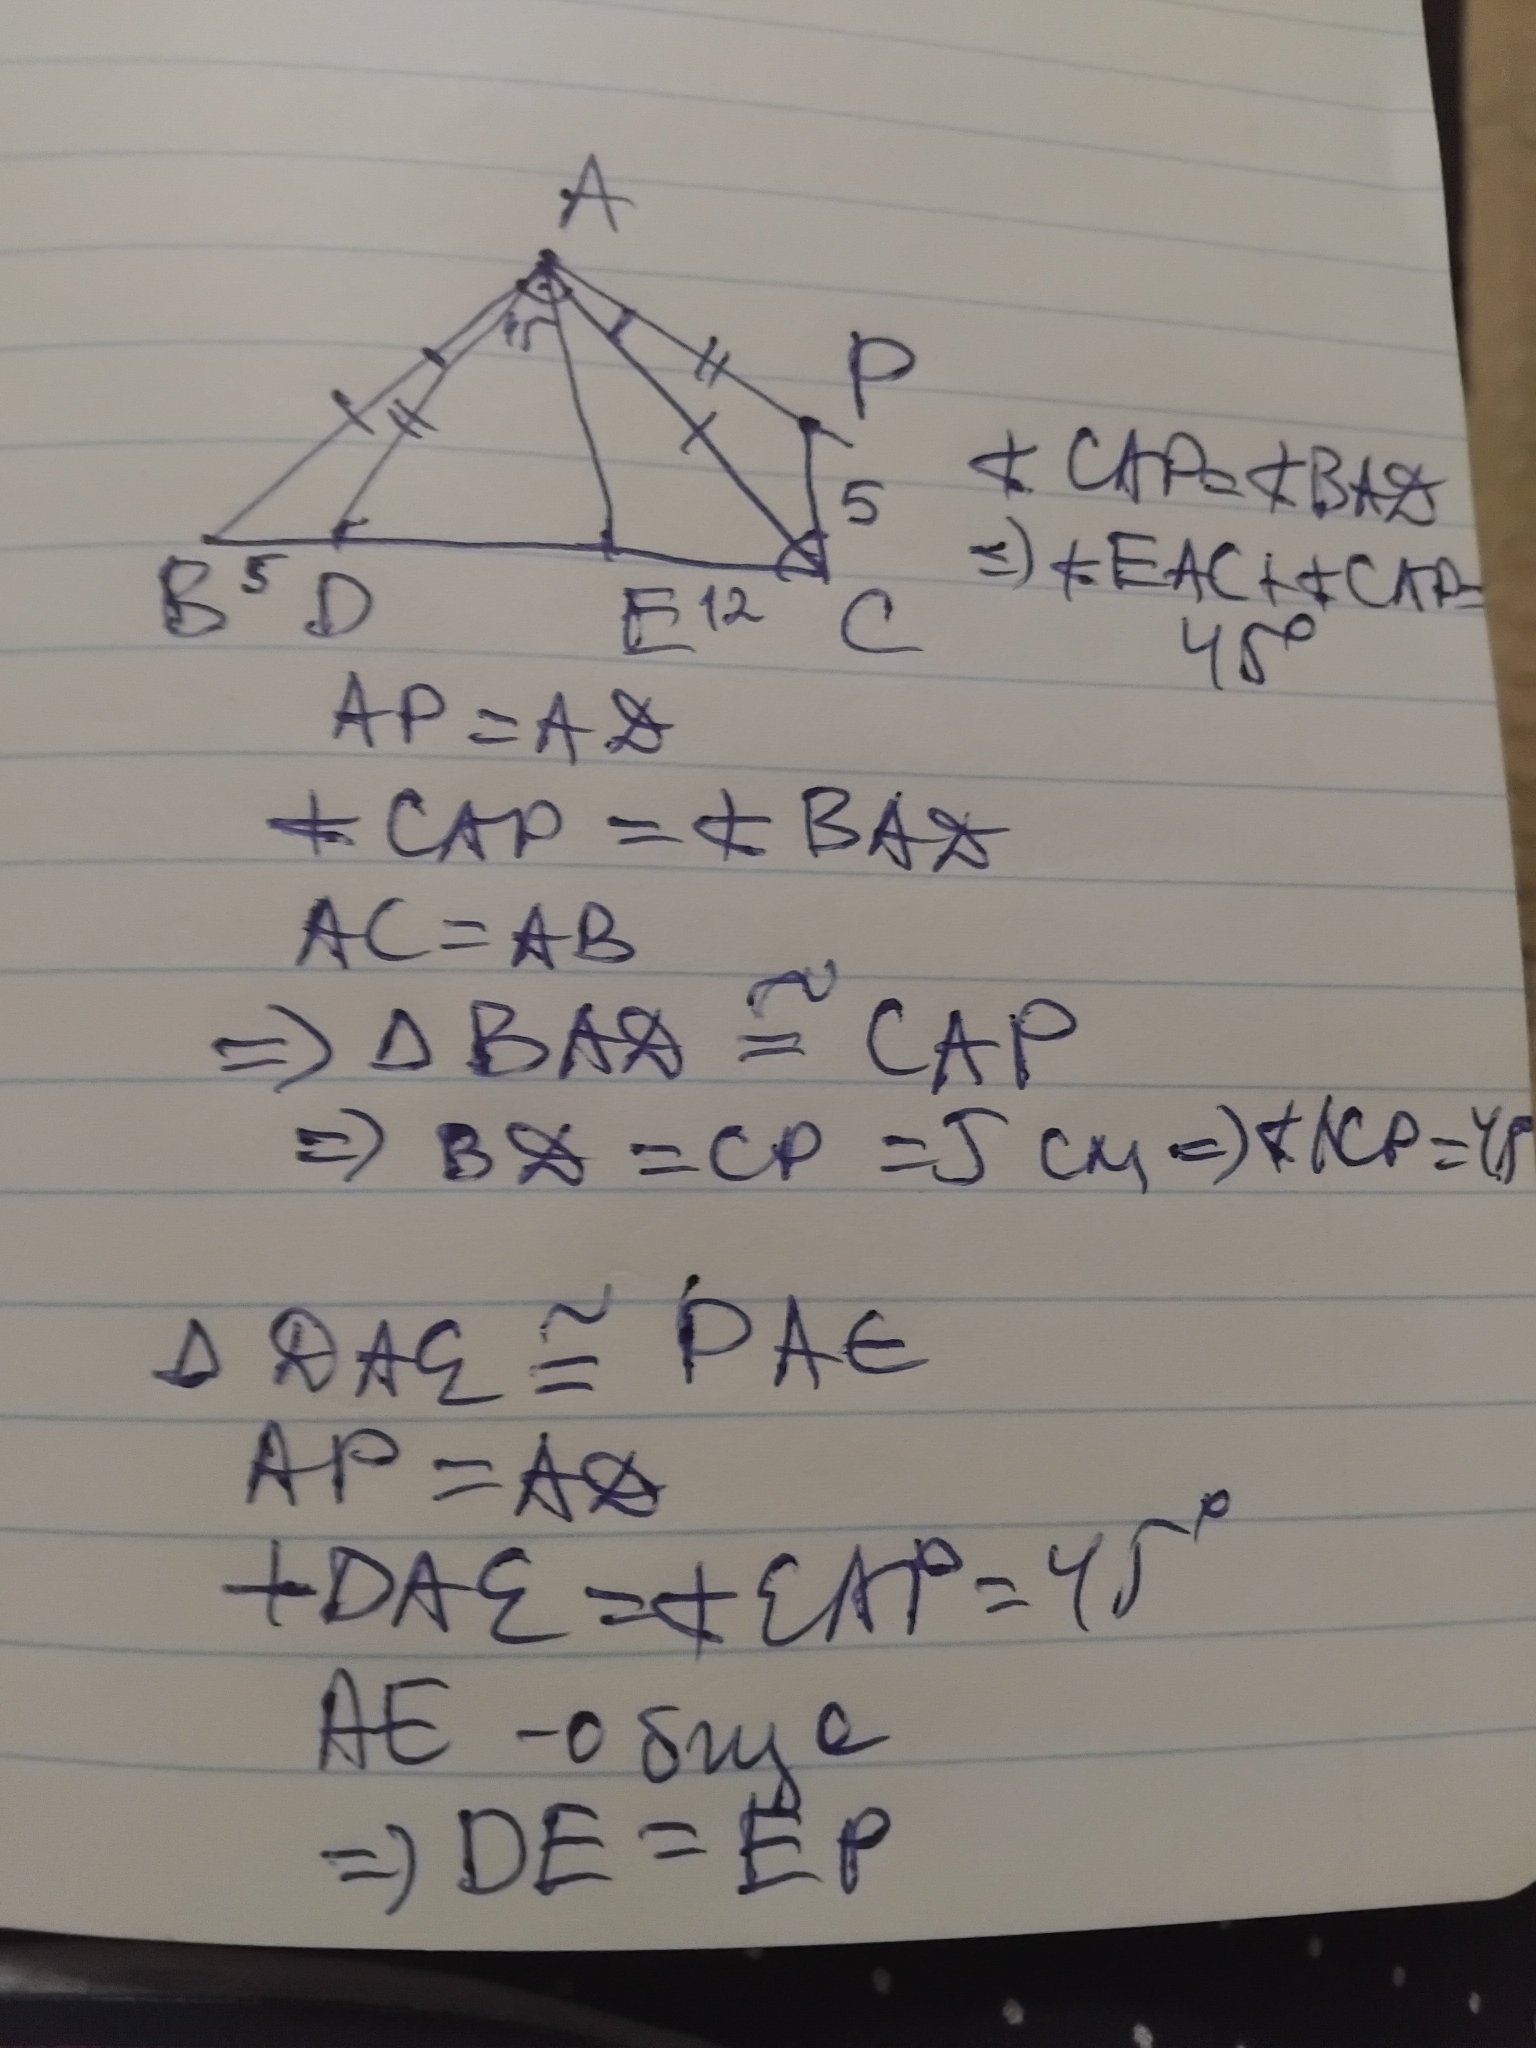 A
45
P
5
B 5 D E 12 C
∢ CAP = ∢BAD
=> ∢EAC + ∢CAP =
45°
AP = AD
∢ CAP = ∢ BAD
AC = AB
=> Δ BAD ≅ CAP
=> BD = CP = 5 см => ∢ACP = 45
Δ DAE ≅ PAE
AP = AD
∢DAE = ∢EAP = 45°
AE - обща
=> DE = EP